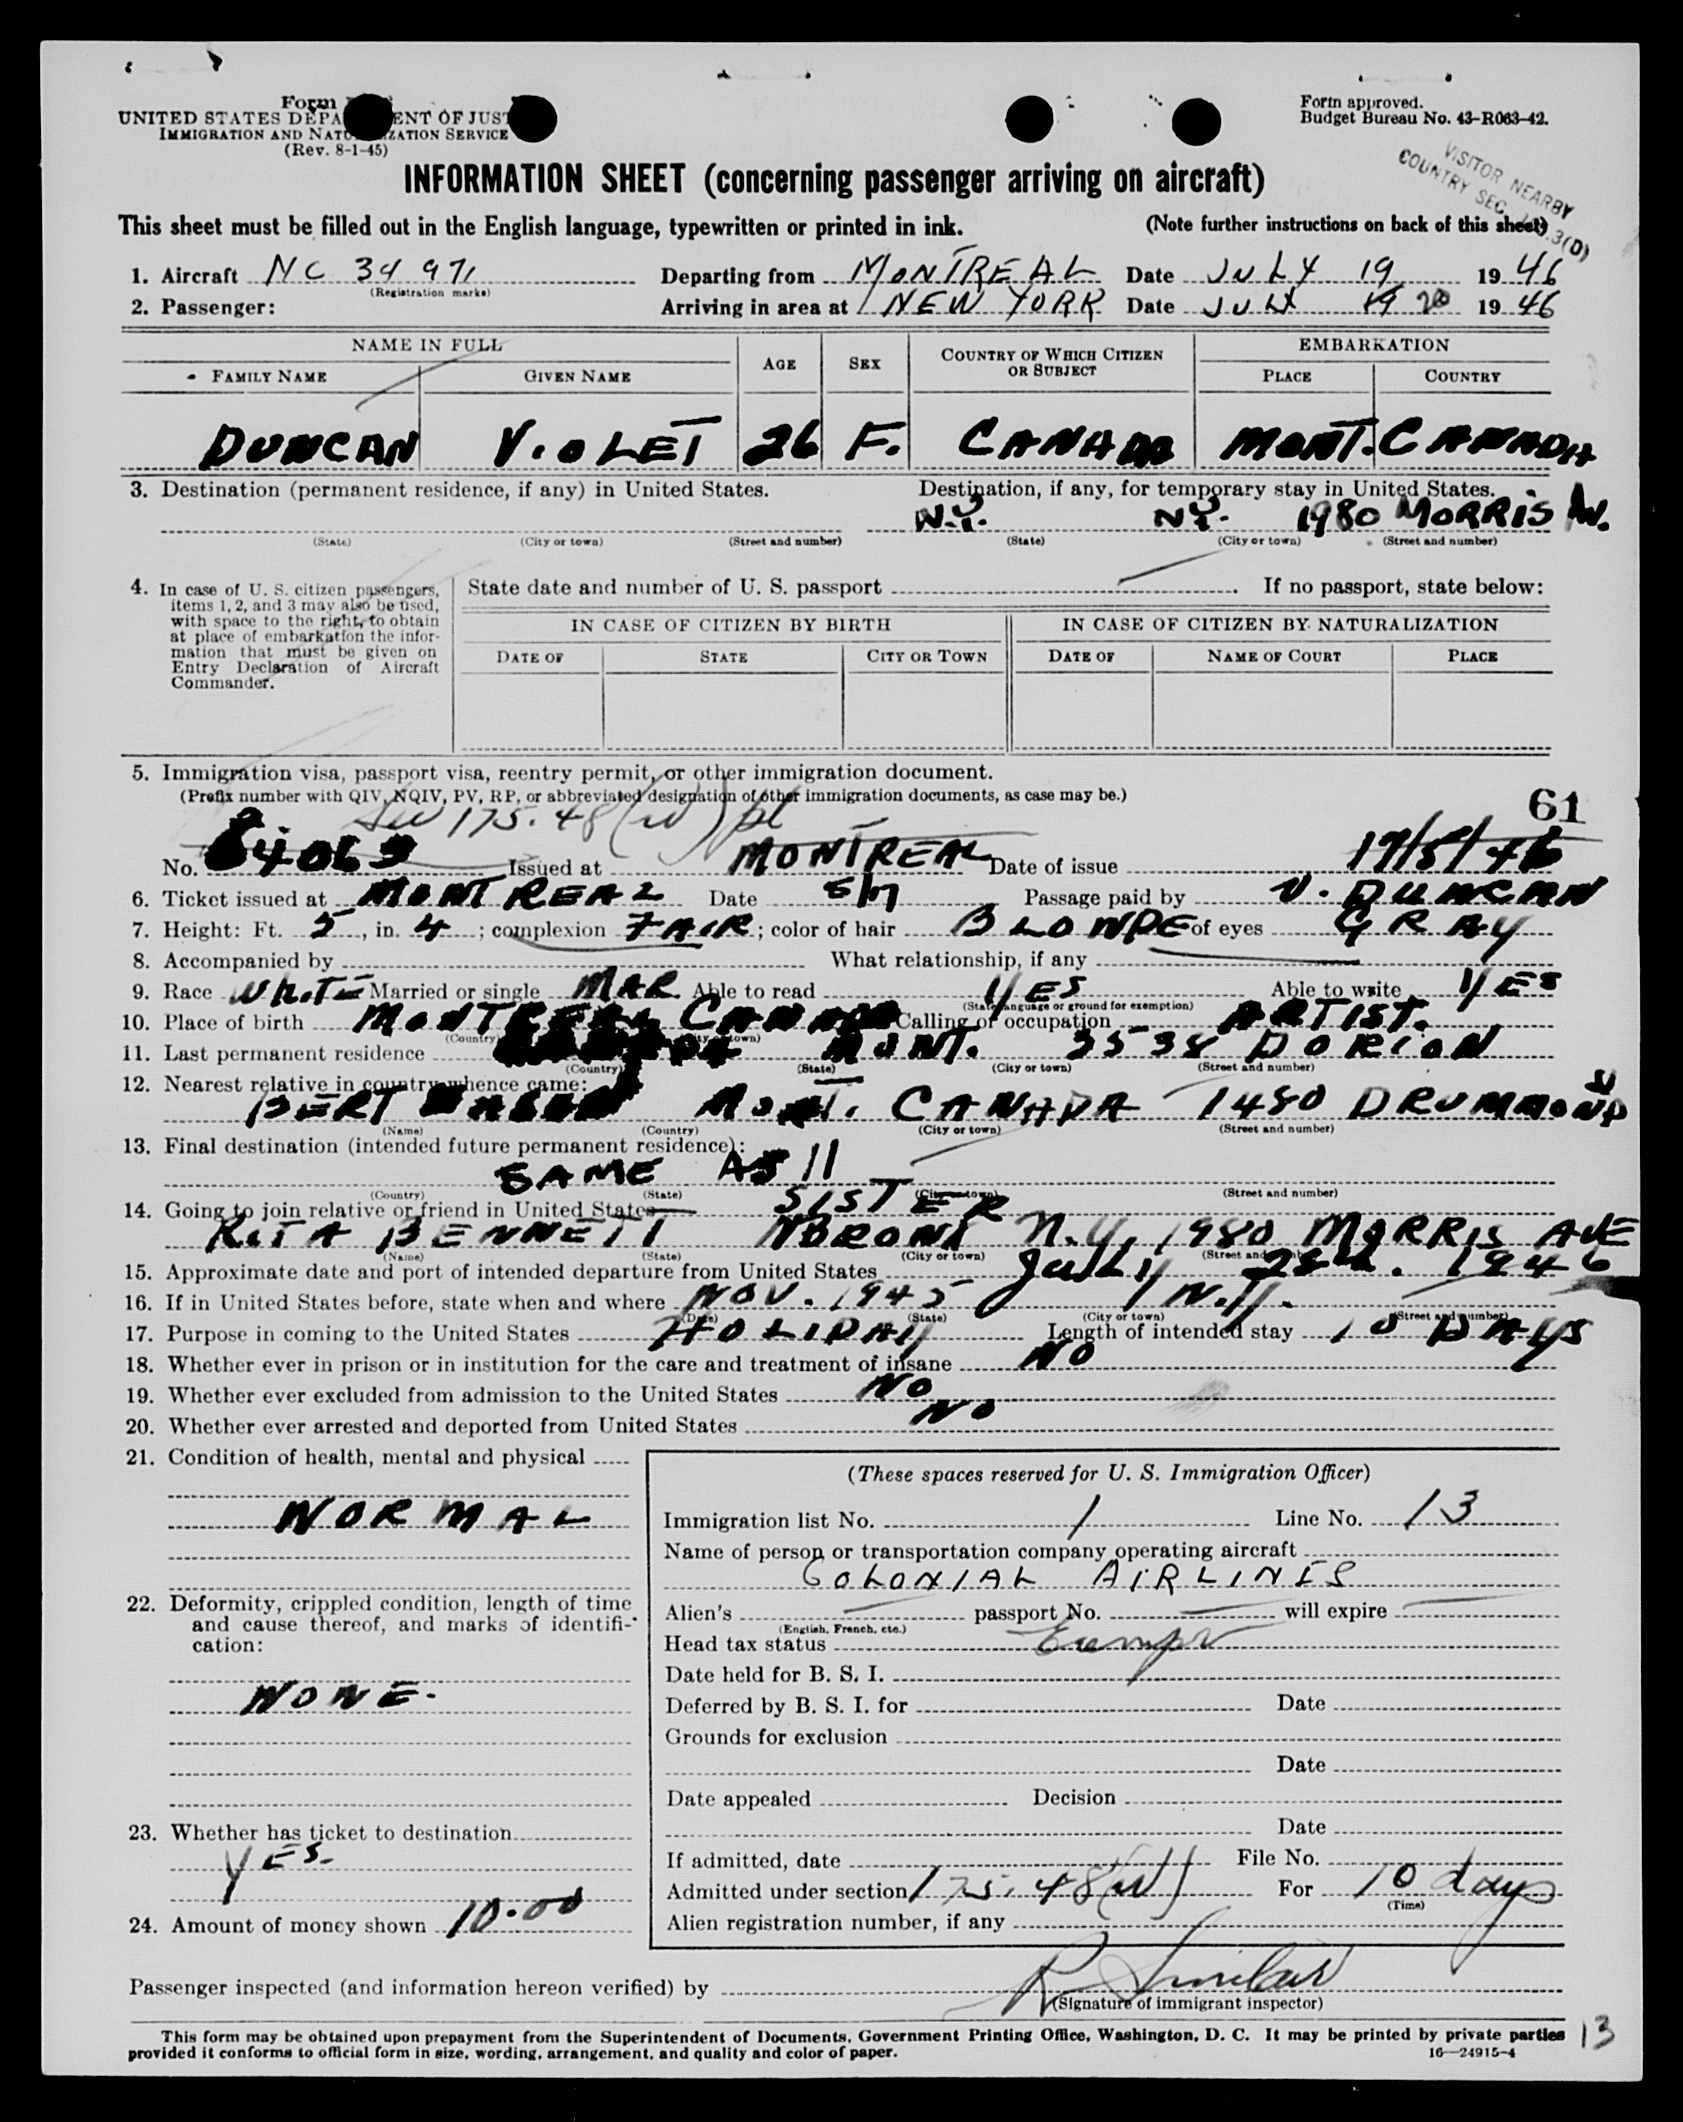 Form
UNITED STATES DEPA ENT OF JUST
IMMIGRATION AND NATU IZATION SERVICE
(Rev. 8-1-45)
Form approved.
Budget Bureau No. 43-R063-42.
VISITOR NEARBY
COUNTRY SEC. 3(D)
INFORMATION SHEET (concerning passenger arriving on aircraft)
This sheet must be filled out in the English language, typewritten or printed in ink. (Note further instructions on back of this sheet)
1. Aircraft NC 34971 Departing from MONTREAL Date JULY 19 1946
(Registration marks)
2. Passenger: Arriving in area at NEW YORK Date JULY 19 20 1946
NAME IN FULL AGE SEX COUNTRY OF WHICH CITIZEN OR SUBJECT EMBARKATION
FAMILY NAME GIVEN NAME PLACE COUNTRY
DUNCAN VIOLET 26 F. CANADA MONT. CANADA
3. Destination (permanent residence, if any) in United States. Destination, if any, for temporary stay in United States.
N.Y. N.Y. 1980 MORRIS AV.
(State) (City or town) (Street and number) (State) (City or town) (Street and number)
4. In case of U. S. citizen passengers, items 1, 2, and 3 may also be used, with space to the right, to obtain at place of embarkation the information that must be given on Entry Declaration of Aircraft Commander.
State date and number of U. S. passport If no passport, state below:
IN CASE OF CITIZEN BY BIRTH IN CASE OF CITIZEN BY NATURALIZATION
DATE OF STATE CITY OR TOWN DATE OF NAME OF COURT PLACE
5. Immigration visa, passport visa, reentry permit, or other immigration document.
(Prefix number with QIV, NQIV, PV, RP, or abbreviated designation of other immigration documents, as case may be.)
175.48(w)
61
No. 64063 Issued at MONTREAL Date of issue 17/5/46
6. Ticket issued at MONTREAL Date 5/17 Passage paid by V. DUNCAN
7. Height: Ft. 5, in. 4; complexion FAIR; color of hair BLONDE of eyes GRAY
8. Accompanied by What relationship, if any
9. Race WHITE Married or single MAR. Able to read YES Able to write YES
(State language or ground for exemption)
10. Place of birth MONTREAL CANADA Calling or occupation ARTIST.
(Country) (City or town)
11. Last permanent residence MONT. 3538 DORION
(Country) (State) (City or town) (Street and number)
12. Nearest relative in country whence came:
BERT MONT. CANADA 1480 DRUMMOND
(Name) (Country) (City or town) (Street and number)
13. Final destination (intended future permanent residence):
SAME AS 11
(Country) (State) (City or town) (Street and number)
14. Going to join relative or friend in United States SISTER
RITA BENNETT BRONX N.Y. 1980 MORRIS AVE
(Name) (State) (City or town) (Street and number)
15. Approximate date and port of intended departure from United States July 28th. 1946
16. If in United States before, state when and where NOV. 1945 N.Y.
(Date) (State) (City or town) (Street and number)
17. Purpose in coming to the United States HOLIDAY Length of intended stay 10 DAYS
18. Whether ever in prison or in institution for the care and treatment of insane NO
19. Whether ever excluded from admission to the United States NO
20. Whether ever arrested and deported from United States NO
21. Condition of health, mental and physical
NORMAL
22. Deformity, crippled condition, length of time and cause thereof, and marks of identification:
NONE.
23. Whether has ticket to destination
YES
24. Amount of money shown 10.00
(These spaces reserved for U. S. Immigration Officer)
Immigration list No. 1 Line No. 13
Name of person or transportation company operating aircraft
COLONIAL AIRLINES
Alien's passport No. will expire
(English, French, etc.)
Head tax status Exempt
Date held for B. S. I.
Deferred by B. S. I. for Date
Grounds for exclusion
Date
Date appealed Decision
Date
If admitted, date File No.
Admitted under section 175.48(w) For 10 days
(Time)
Alien registration number, if any
Passenger inspected (and information hereon verified) by R Sinclair
(Signature of immigrant inspector)
This form may be obtained upon prepayment from the Superintendent of Documents, Government Printing Office, Washington, D. C. It may be printed by private parties
provided it conforms to official form in size, wording, arrangement, and quality and color of paper. 16—24915-4
13